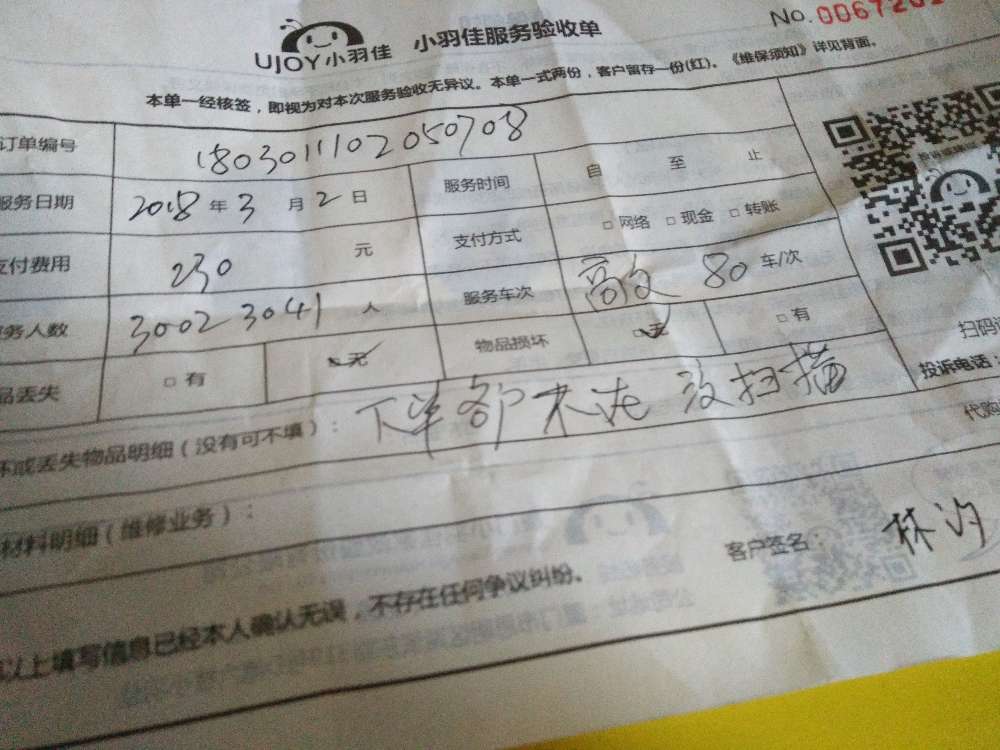 UJOY小羽佳 小羽佳服务验收单
No.0067201
本单一经核签，即视为对本次服务验收无异议。本单一式两份，客户留存一份(红)。《维保须知》详见背面。
订单编号 1803011102050708
服务日期 2018年3月2日 服务时间 自 至 止
支付费用 230 元 支付方式 □网络 □现金 □转账
务人数 30023041 人 服务车次 80 车/次
品丢失 □有 □无 物品损坏 □无 □有
扫码
投诉电话：
坏或丢失物品明细（没有可不填）： 下单客户不在 没扫描
代购
材料明细（维修业务）：
客户签名： 林汐
以上填写信息已经本人确认无误，不存在任何争议纠纷。